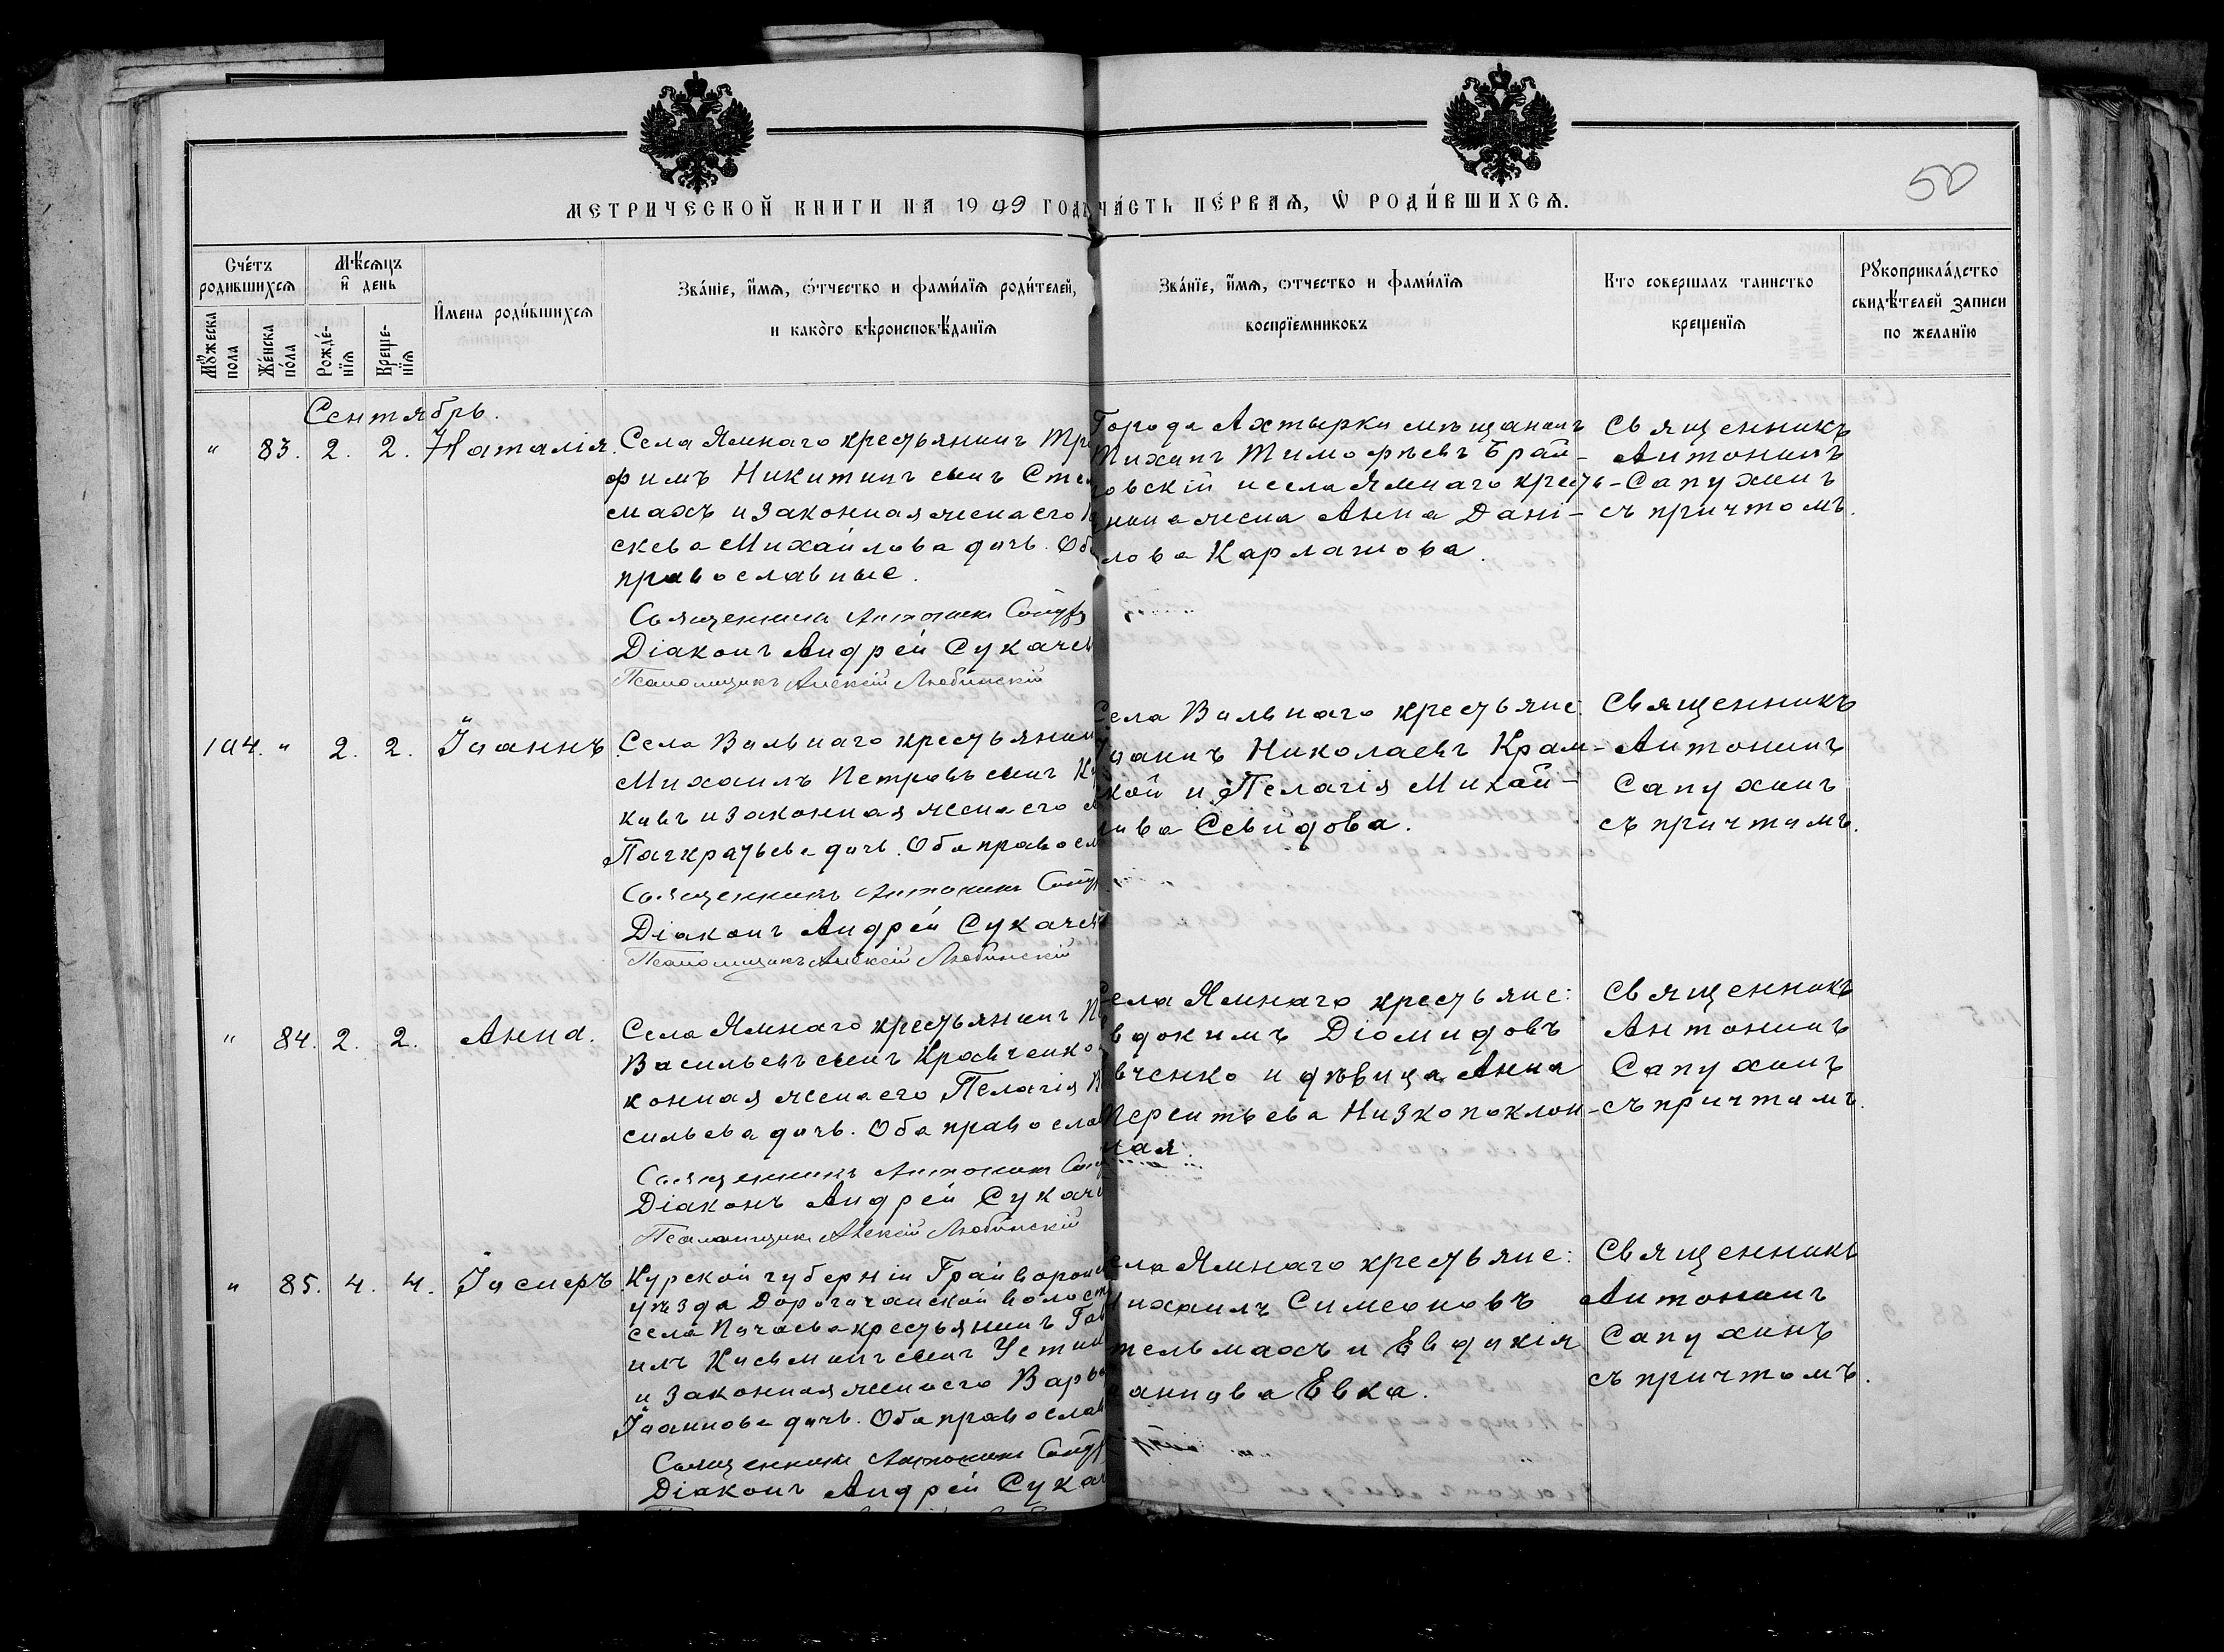 50
МЕТРИЧЕСКОЙ КНИГИ НА 1909 ГОДЪ ЧАСТЬ ПЕРВАЯ, Ѡ РОДИ́ВШИХСЯ.
Сче́тъ родившихся
Мѣ́сяцъ и день
Мꙋжеска пола
Же́нска по́ла
Рожде́нїя
Креще́нїя
И҆мена роди́вшихся
Зва́нїе, и҆́мя, ѻ҆́тчество и фами́лїя роди́телей,
и како́го вѣроисповѣ́данїя
Зва́нїе, и҆́мя, ѻ҆тчество и фами́лїя
воспрїемниковъ
Кто совершалъ таинство
крещенїя
Рꙋкоприкла́дство
свидѣ́телей записи
по желанїю
Сентябрь.
" 83. 2. 2. Наталія.
Села Ямнаго крестьянинъ Тро
фимъ Никитинъ сынъ Стел
махъ и законная жена его
скева Михайлова дочь. Об
православные.
Священникъ Антонинъ
Діаконъ Андрей Сукачев
Псаломщикъ Алексій Любинскій
Города Ахтырки мѣщанинъ
Тихонъ Тимофѣевъ
и села Ямнаго кресть-
жена Анна Дані-
лова Карлашова.
Священникъ
Антонинъ
Сапухинъ
съ причтомъ.
104. " 2. 2. Іоаннъ
Села Вольнаго крестьянин
Михаилъ Петровъ сынъ
ковъ и законная жена его
Панкратьева дочь. Оба правосл
Священникъ Антонинъ
Діаконъ Андрей Сукачев
Псаломщикъ Алексій Любинскій
Села Вольнаго крестьяне:
Іоаннъ Николаевъ Крам-
ской и Пелагія Михай-
лова Севидова.
Священникъ
Антонинъ
Сапухинъ
съ причтомъ.
" 84. 2. 2. Анна.
Села Ямнаго крестьянинъ
Васильевъ сынъ Кравченко
конная жена его Пелагія
сильева дочь. Оба правосла
Священникъ Антонинъ
Діаконъ Андрей Сукач
Псаломщикъ Алексій Любинскій
Села Ямнаго крестьяне:
вдокимъ Діомидовъ
вченко и дѣвица Анна
Терентьева Низкопоклон-
ная:
Священникъ
Антонинъ
Сапухинъ
съ причтомъ.
" 85. 4. 4.
Курской губерніи Грайворон
уѣзда Дорогощанской волост
села крестьянинъ Гав
илъ Косьминъ сынъ Устин
и законная жена его Варв
Іоаннова дочь. Оба православ
Священникъ Антонинъ
Діаконъ Андрей Сукач
села Ямнаго крестьяне:
Михаилъ Симеоновъ
тельмахъ и Евдокія
оаннова Евка.
Священникъ
Антонинъ
Сапухинъ
съ причтомъ.